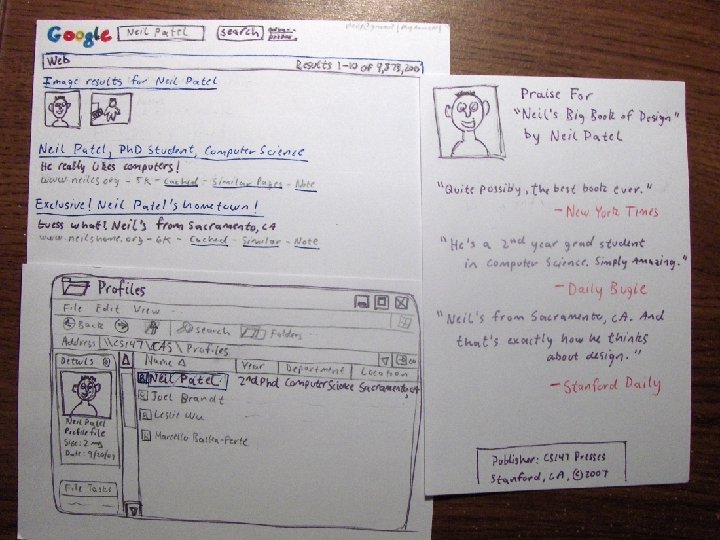 Google Neil Patel search
Web Results 1-10 of 9,873,200
Image results for Neil Patel
Neil Patel, PhD Student, Computer Science
He really likes computers!
www.neilcs.org - 5K - Cached - Similar Pages - Note
Exclusive! Neil Patel's hometown!
Guess what? Neil's from Sacramento, CA
www.neilshome.org - 6K - Cached - Similar - Note
Profiles
File Edit View
Back Search Folders
Address \\CS147\CAs\Profiles
Details Name Year Department Location
Neil Patel 2nd PhD Computer Science Sacramento, CA
Joel Brandt
Leslie Wu
Neil Patel
Profile file
Size: 2 mg
Date: 9/20/07
File Tasks
Praise For
"Neil's Big Book of Design"
by Neil Patel
"Quite possibly, the best book ever."
- New York Times
"He's a 2nd year grad student
in computer science. Simply Amazing."
- Daily Bugle
"Neil's from Sacramento, CA. And
that's exactly how he thinks
about design."
- Stanford Daily
Publisher: CS147 Presses
Stanford, CA, © 2007